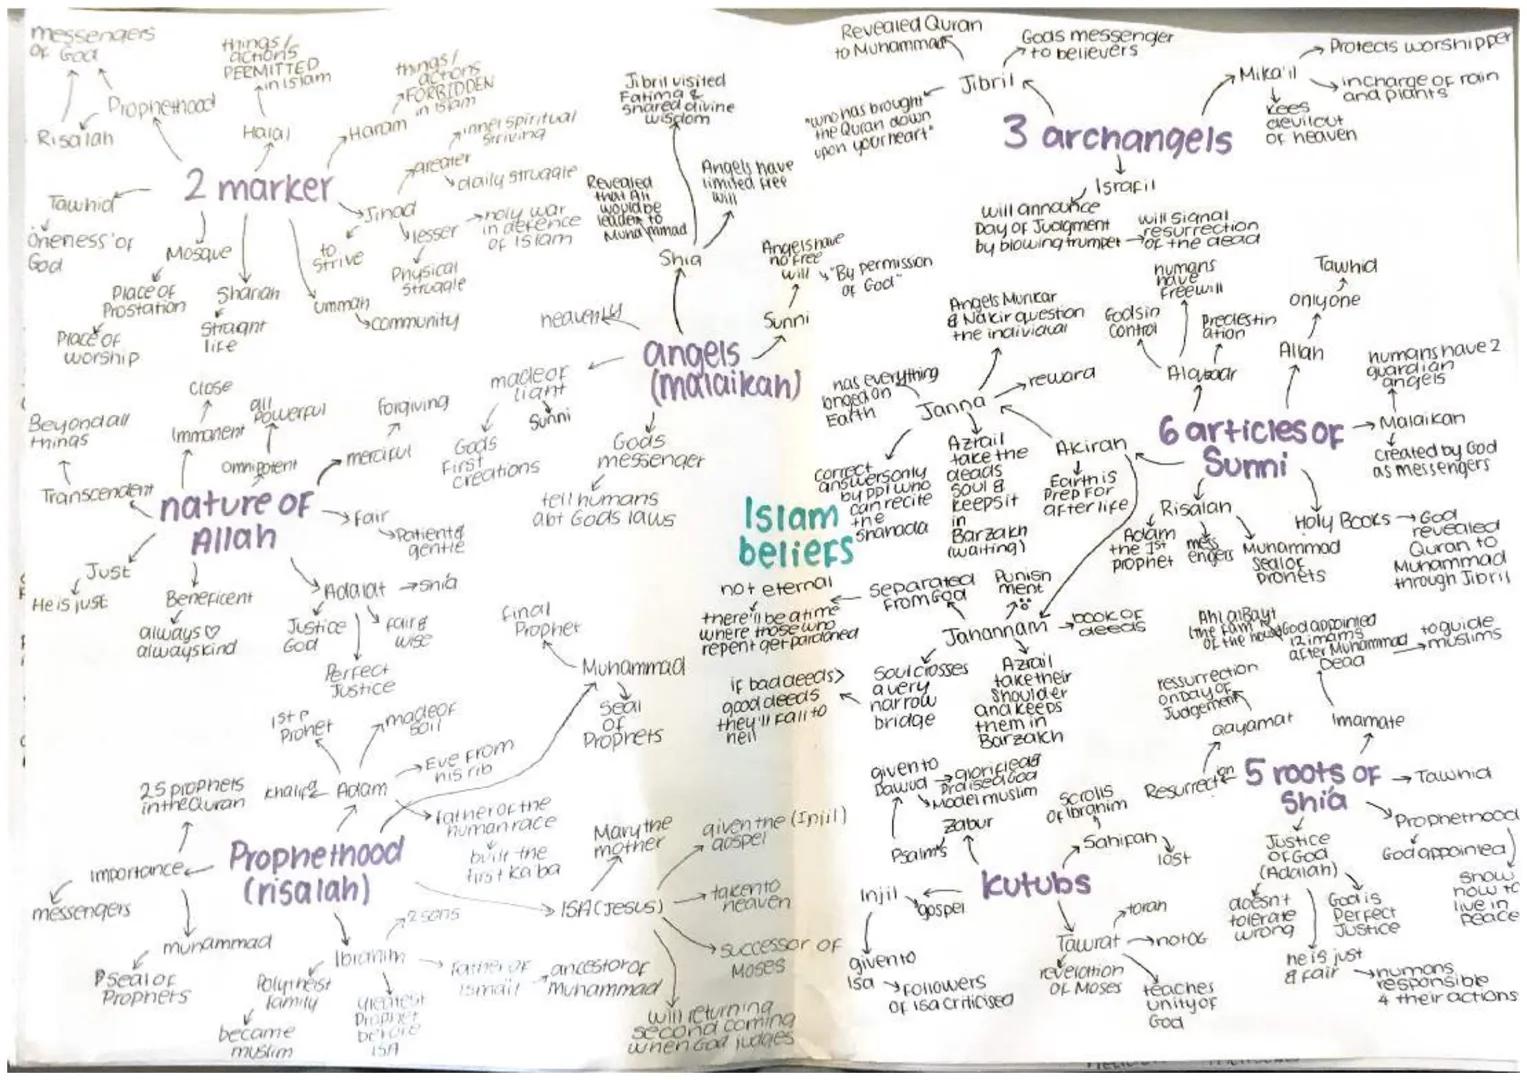 messengers
of God
Prophethood
Risalah
things/
actions
PERMITTED
in Islam
Halal
things/
actions
FORBIDDEN
in Islam
Haram
2 marker
Tawhid
Oneness of
God
Mosque
Place of
Prostation
Place of
worship
Shariah
Straight
life
ummah
community
Jihad
to
strive
greater
inner spiritual
striving
daily struggle
lesser
holy war
in defence
of Islam
Physical
Struggle
Jibril visited
Fatima &
shared divine
wisdom
Revealed
that Ali
would be
leader to
Muhammad
Angels have
limited free
will
Shia
Angels have
no free
will
"By permission
of God"
Sunni
heavenly
angels
(malaikah)
made of
light
Sunni
Gods
First
creations
Gods
messenger
tell humans
abt Gods laws
Close
Immanent
all
Powerful
Omnipotent
forgiving
merciful
Beyond all
things
Transcendent
nature of
Allah
fair
Patient &
gentle
Just
He is just
Beneficent
always ♡
always kind
Adalat
shia
Justice
God
fair &
wise
Perfect
Justice
Islam
beliefs
final
Prophet
Muhammad
Seal
of
Prophets
1st P
Prohet
made of
soil
Khalifa
Adam
Eve From
his rib
father of the
human race
built the
first Kaba
25 prophets
in the Quran
importance
messengers
muhammad
Seal of
Prophets
Prophethood
(risalah)
Ibrahim
2 sons
Polytheist
family
became
muslim
greatest
Prophet
before
ISA
father of
Ismail
ancestor of
Muhammad
ISA (Jesus)
Mary the
mother
given the (Injil)
gospel
taken to
heaven
successor of
Moses
will returning
second coming
when God judges
Revealed Quran
to Muhammad
Gods messenger
to believers
Jibril
"who has brought
the Quran down
upon your heart"
3 archangels
Mika'il
Protects worshipper
in charge of rain
and plants
kees
devil out
of heaven
Israfil
will announce
Day of Judgment
by blowing trumpet
will signal
resurrection
of the dead
6 articles of
Sunni
humans
have
freewill
Gods in
control
Predestin
ation
Alqadar
Tawhid
only one
Allah
humans have 2
guardian
angels
Malaikah
created by God
as messengers
Holy Books
God
revealed
Quran to
Muhammad
through Jibril
Risalah
Adam
the 1st
prophet
mess
engers
Muhammad
seal of
Prohets
Akirah
Earth is
Prep For
afterlife
Janna
Angels Munkar
& Nakir question
the individual
reward
has everything
longed on
Earth
correct
answers only
by ppl who
can recite
the
shahada
Azrail
take the
deads
soul &
keeps it
in
Barzakh
(waiting)
Jahannam
separated
from God
Punish
ment
not eternal
there'll be a time
where those who
repent get pardoned
book of
deeds
Soul crosses
a very
narrow
bridge
if bad deeds >
good deeds
they'll fall to
hell
Azrail
take their
Shoulder
and keeps
them in
Barzakh
5 roots of
Shi'a
Imamate
God appointed
12 imams
after Muhammad
Dead
to guide
muslims
Ahl al Bayt
Resurrection
Qayamat
ressurrection
on Day of
Judgement
Tawhid
Prophethood
God appointed
show
how to
live in
peace
Justice
of God
(Adalah)
doesn't
tolerate
wrong
he is just
& fair
God is
Perfect
Justice
humans
responsible
4 their actions
kutubs
Zabur
given to
Dawud
glorified &
Praised God
Model muslim
Psalms
Sahifah
Scrolls
of Ibrahim
lost
Injil
gospel
given to
Isa
followers
of Isa criticised
Tawrat
torah
not OG
revelation
of Moses
teaches
unity of
God